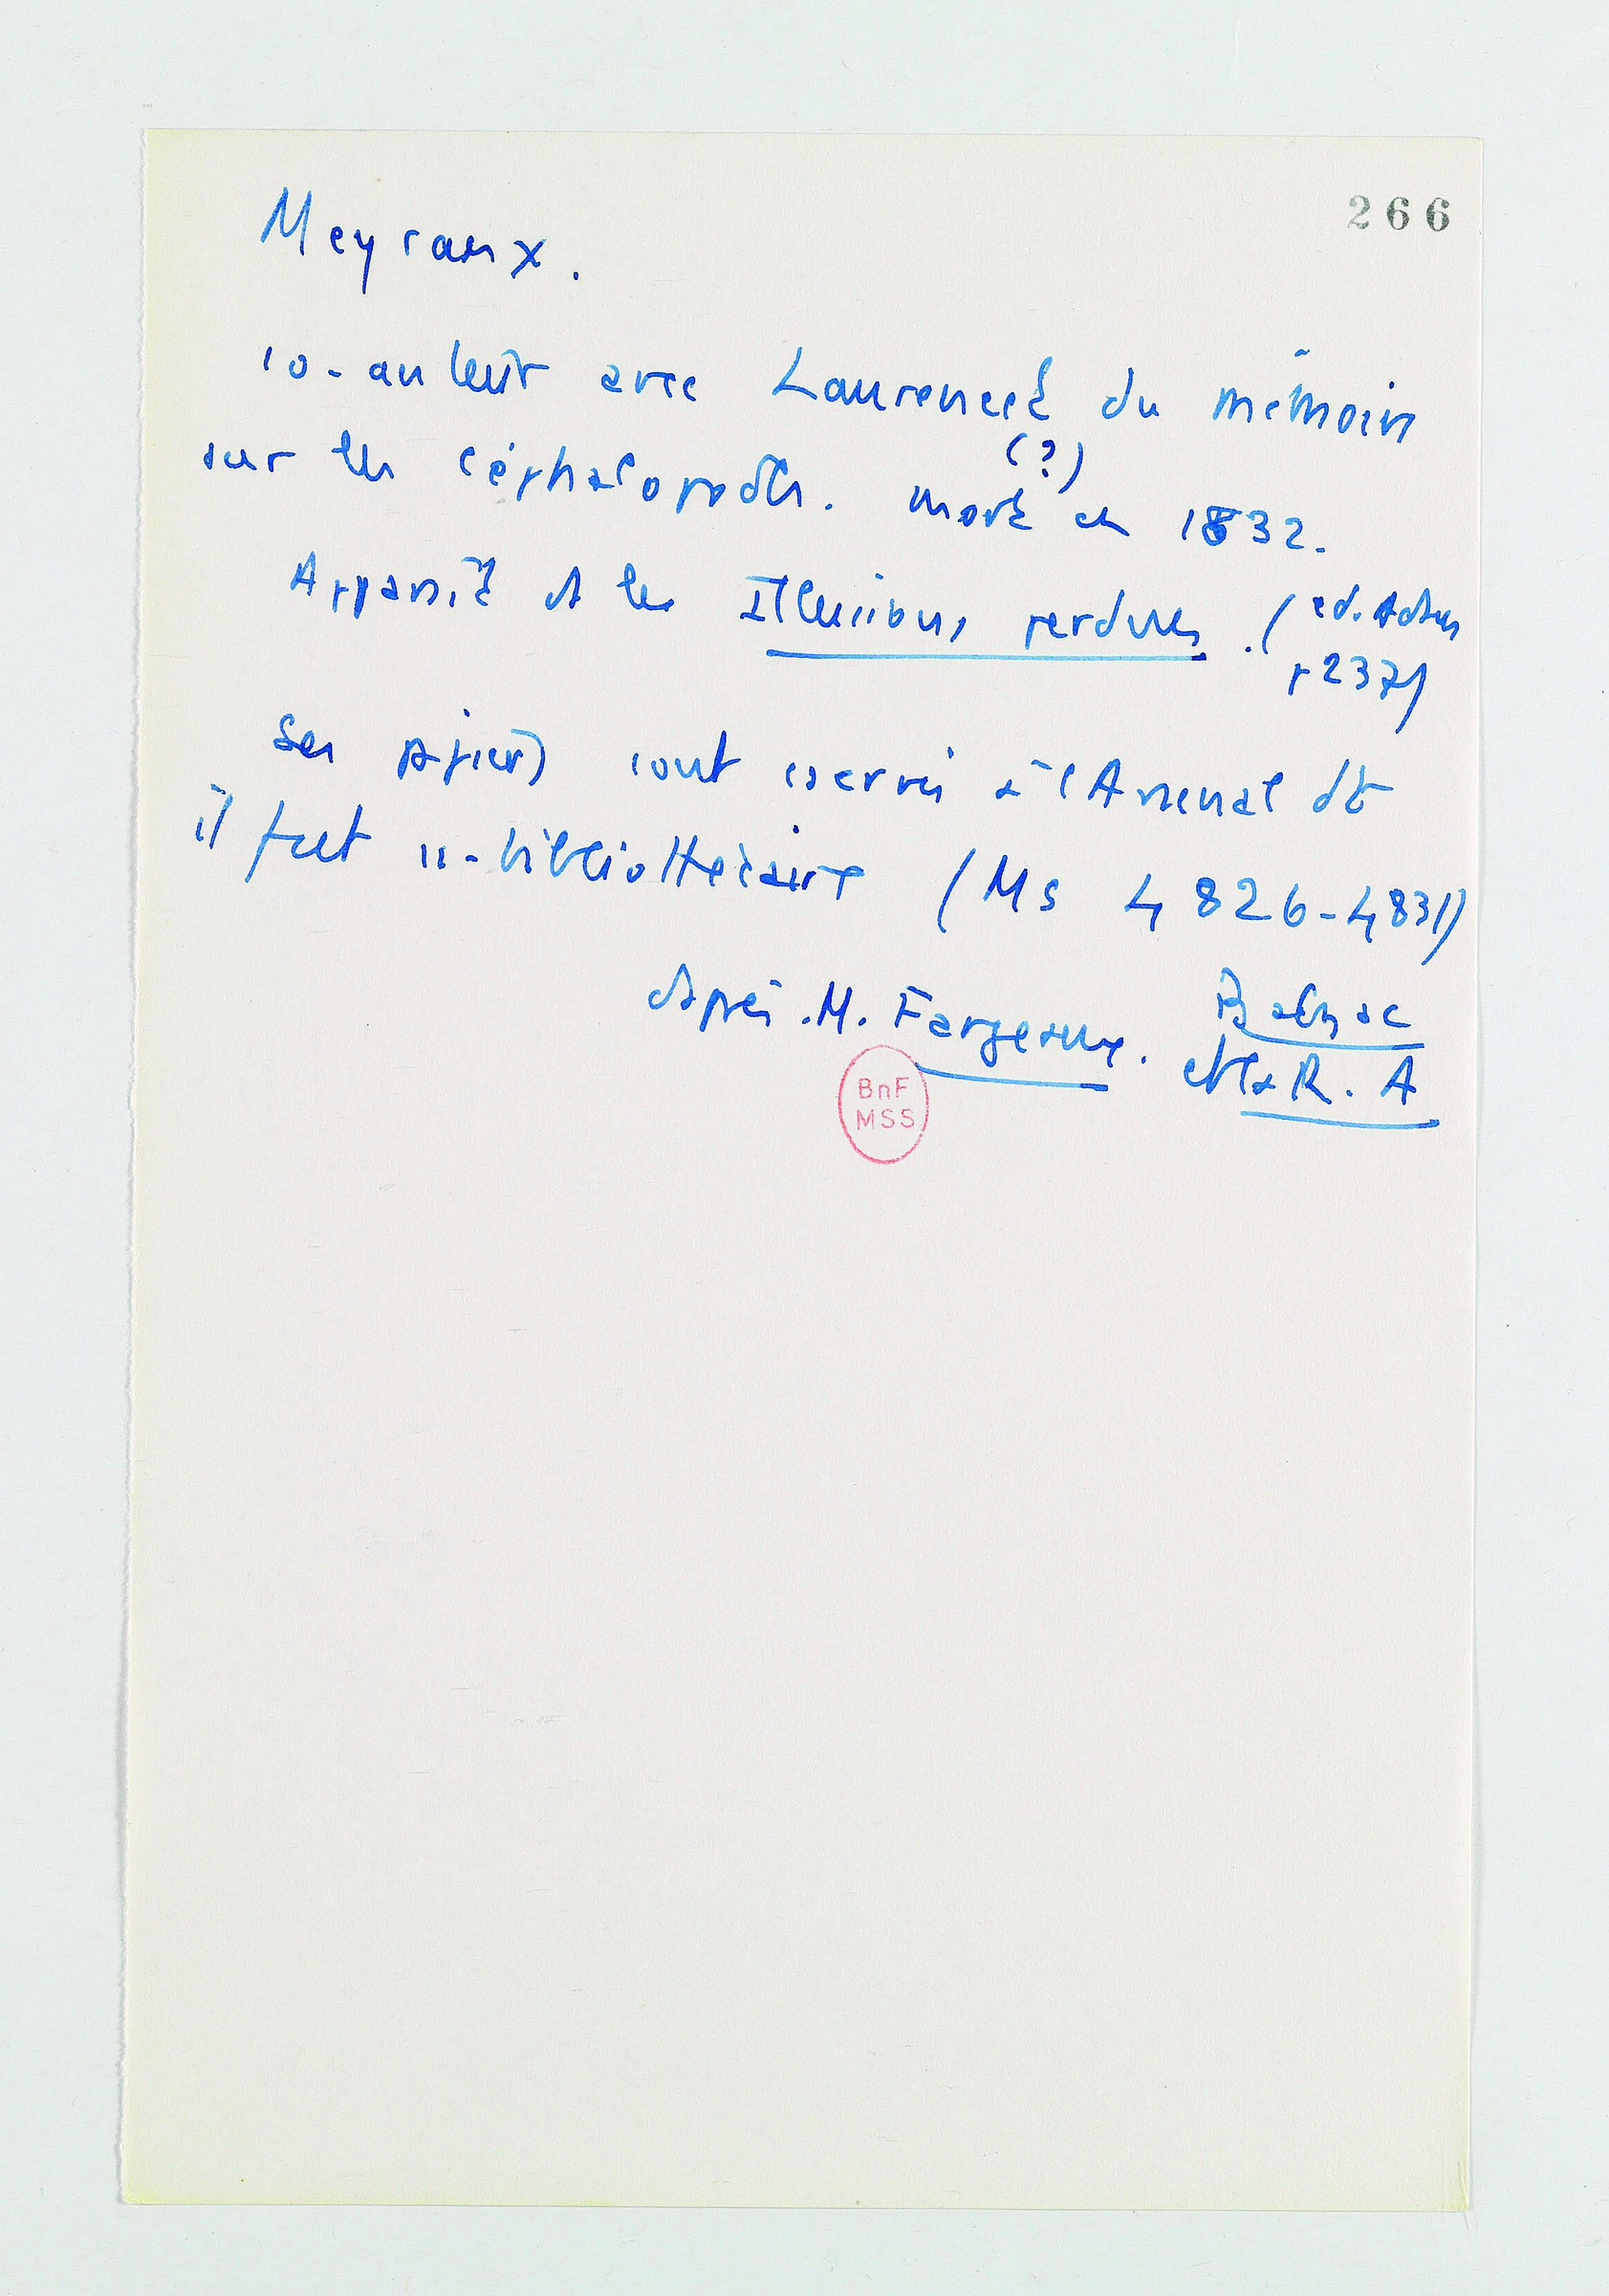 266
Meyranx.
co-auteur avec Laurencet du mémoire
sur les céphalopodes. mort (?) en 1832.
Apparaît ds les Illusions perdues. (ed. Adam
p 237)
Ses papiers sont cservés à l'Arsenal dt
il fut ss-bibliothécaire (Ms 4826-4831)
d'après M. Fargeaux. Balzac
et la R. A
BnF
MSS